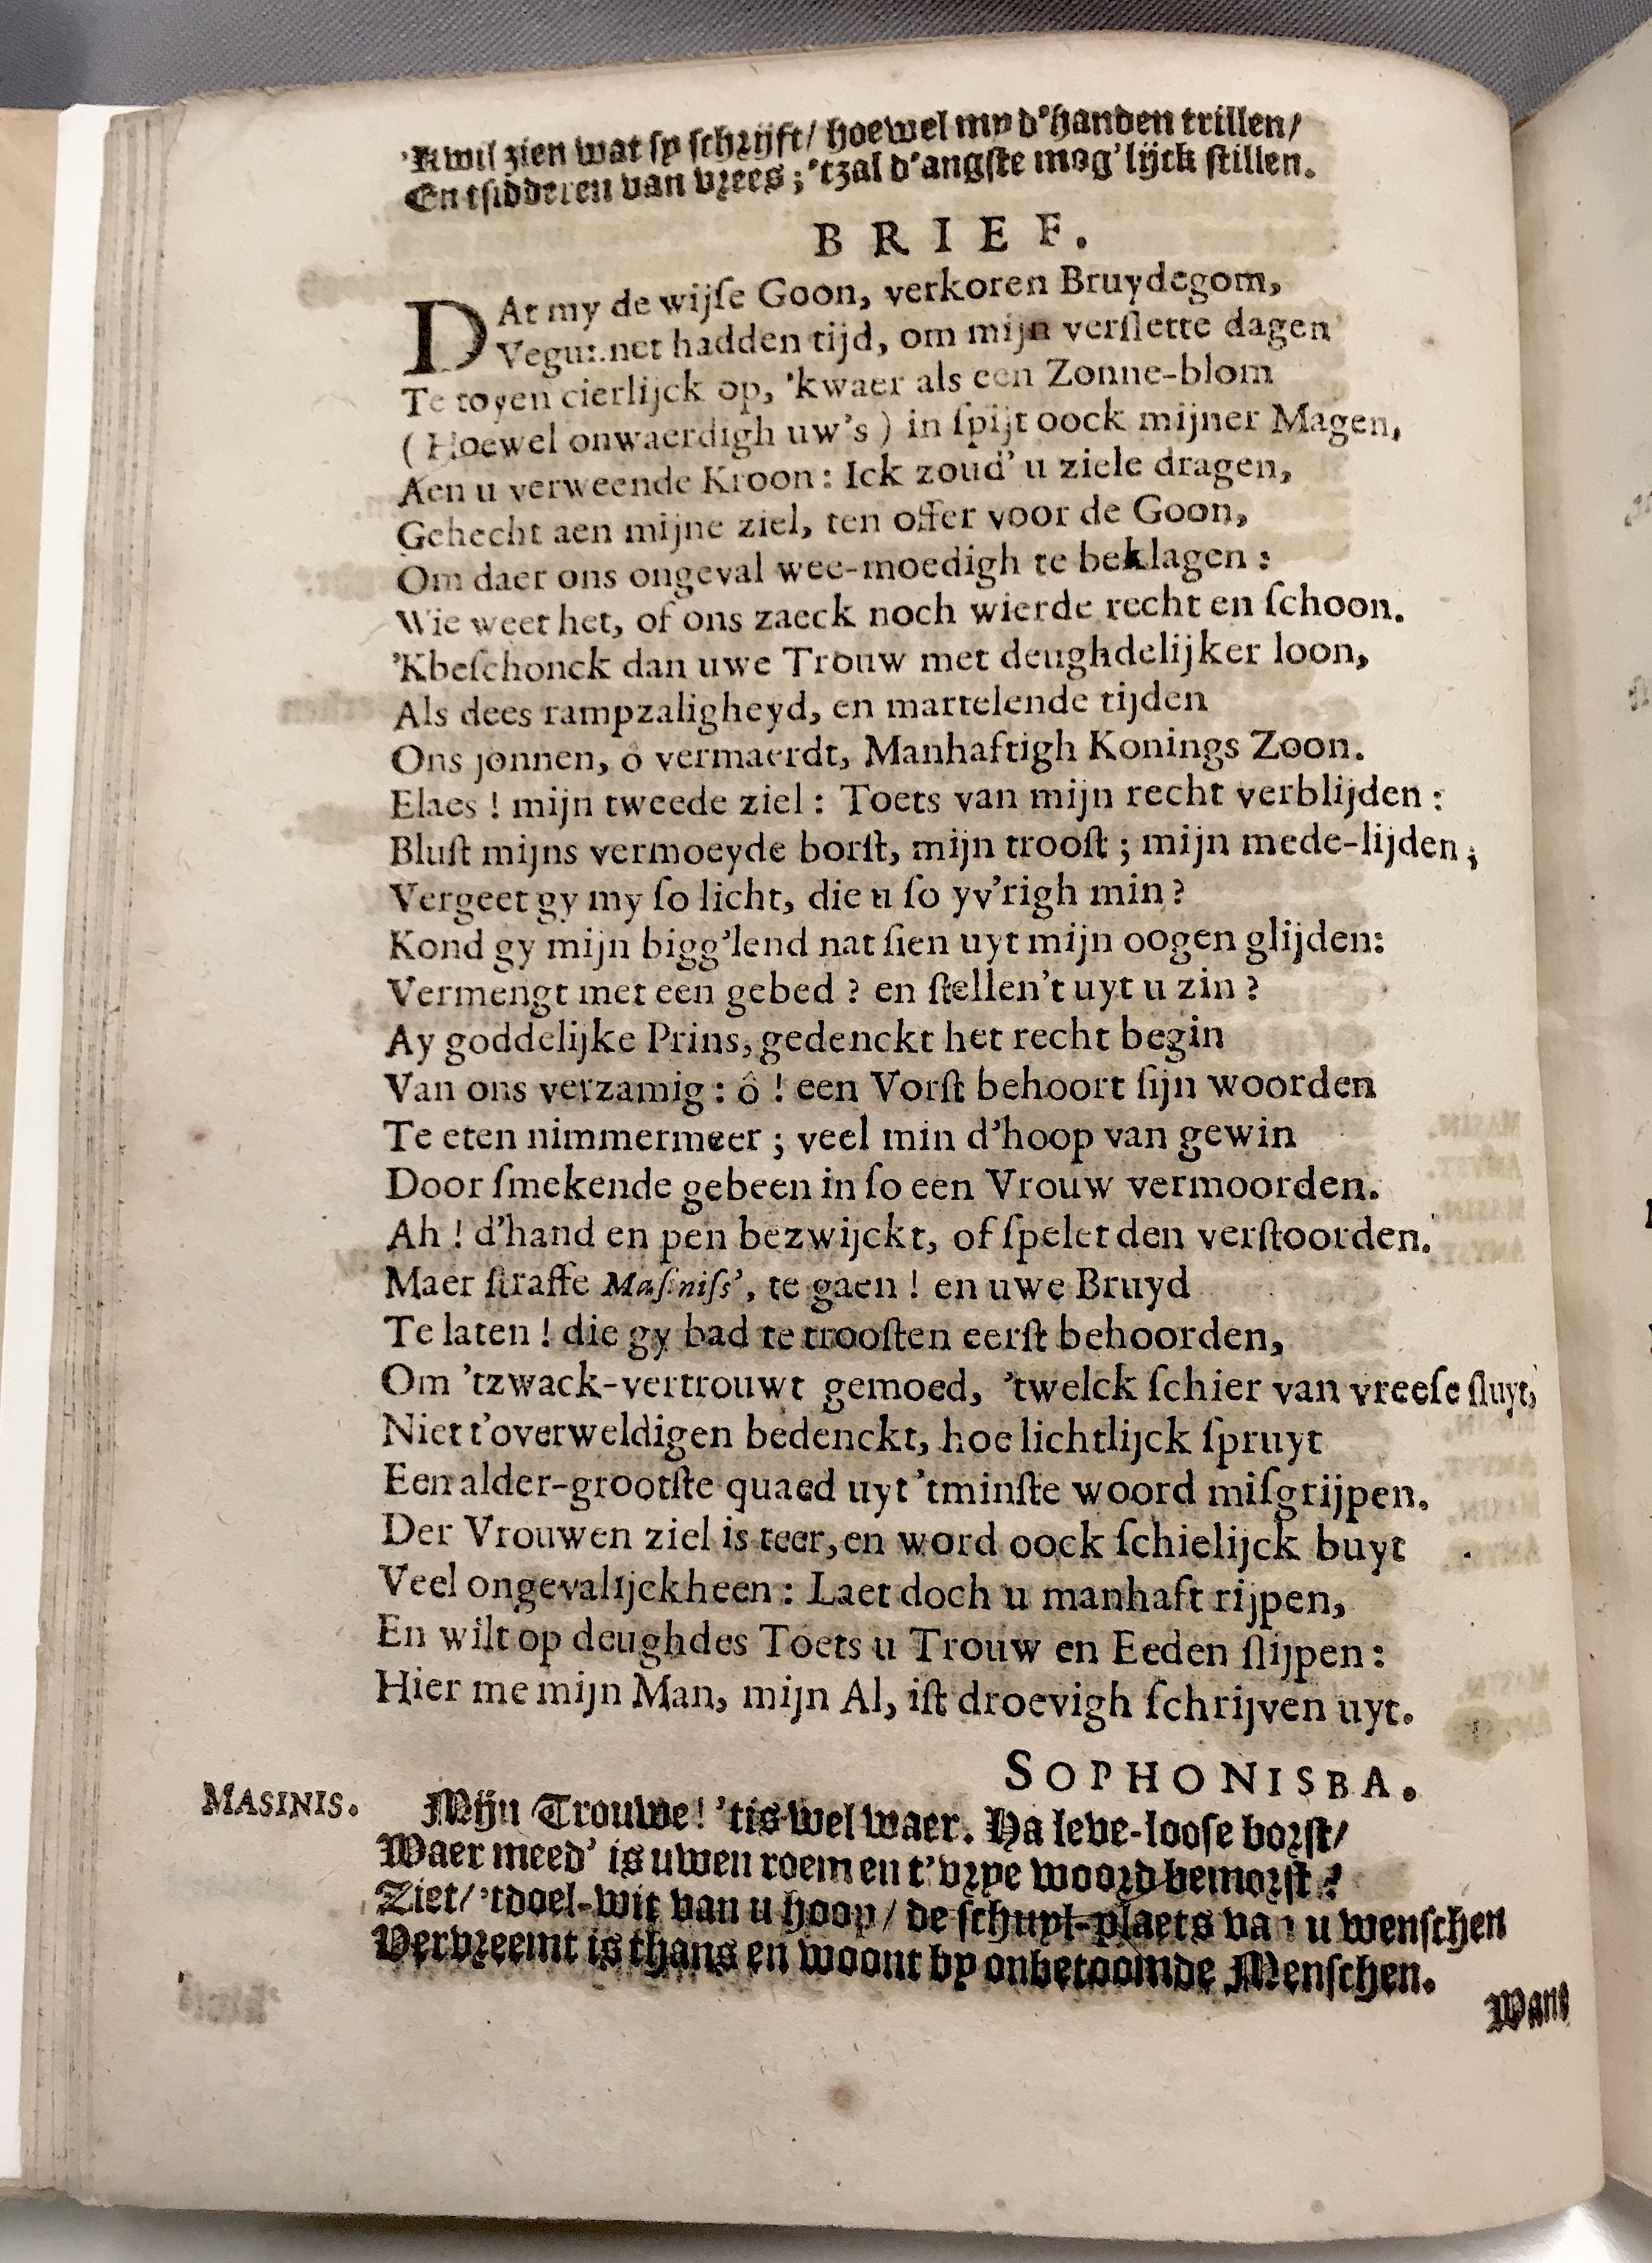 'Kwil zien wat sy schrijft/ hoewel my d'handen trillen/
En tsidderen van vrees; 'tzal d'angste mog'lijck stillen.
BRIEF.
DAt my de wijse Goon, verkoren Bruydegom,
hadden tijd, om mijn verslette dagen
Te toyen cierlijck op, 'kwaer als een Zonne-blom
(Hoewel onwaerdigh uw's) in spijt oock mijner Magen,
Aen u verweende Kroon: Ick zoud' u ziele dragen,
Gehecht aen mijne ziel, ten offer voor de Goon,
Om daer ons ongeval wee-moedigh te beklagen:
Wie weet het, of ons zaeck noch wierde recht en schoon.
'Kbeschonck dan uwe Trouw met deughdelijker loon,
Als dees rampzaligheyd, en martelende tijden
Ons jonnen, ô vermaerdt, Manhaftigh Konings Zoon.
Elaes! mijn tweede ziel: Toets van mijn recht verblijden:
Blust mijns vermoeyde borst, mijn troost; mijn mede-lijden;
Vergeet gy my so licht, die u so yv'righ min?
Kond gy mijn bigg'lend nat sien uyt mijn oogen glijden:
Vermengt met een gebed? en stellen't uyt u zin?
Ay goddelijke Prins, gedenckt het recht begin
Van ons verzamig: ô! een Vorst behoort sijn woorden
Te eten nimmermeer; veel min d'hoop van gewin
Door smekende gebeen in so een Vrouw vermoorden.
Ah! d'hand en pen bezwijckt, of spelet den verstoorden.
Maer straffe Masiniss', te gaen! en uwe Bruyd
Te laten! die gy bad te troosten eerst behoorden,
Om 'tzwack-vertrouwt gemoed, 'twelck schier van vreese sluyt,
Niet t'overweldigen bedenckt, hoe lichtlijck spruyt
Een alder-grootste quaed uyt 'tminste woord misgrijpen.
Der Vrouwen ziel is teer, en word oock schielijck buyt
Veel ongevalijckheen: Laet doch u manhaft rijpen,
En wilt op deughdes Toets u Trouw en Eeden slijpen:
Hier me mijn Man, mijn Al, ist droevigh schrijven uyt.
SOPHONISBA.
MASINIS. Mijn Trouwe! 'tis wel waer. Ha leve-loose borst/
Waer meed' is uwen roem en t'vrye woord bemorst?
Ziet/ 'tdoel-wit van u hoop/ de schuyl-plaets van u wenschen
Vervreemt is thans en woont by onbetoomde Menschen.
Want